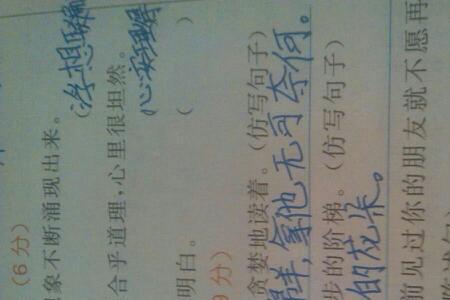 (6分)
象不断涌现出来。(浮想联翩
合乎道理,心里很坦然。心安理得
明白。( )
分)
贪婪地读着。(仿写句子)
拿他无可奈何。
步的阶梯。(仿写句子)
的花朵。
前见过你的朋友就不愿再